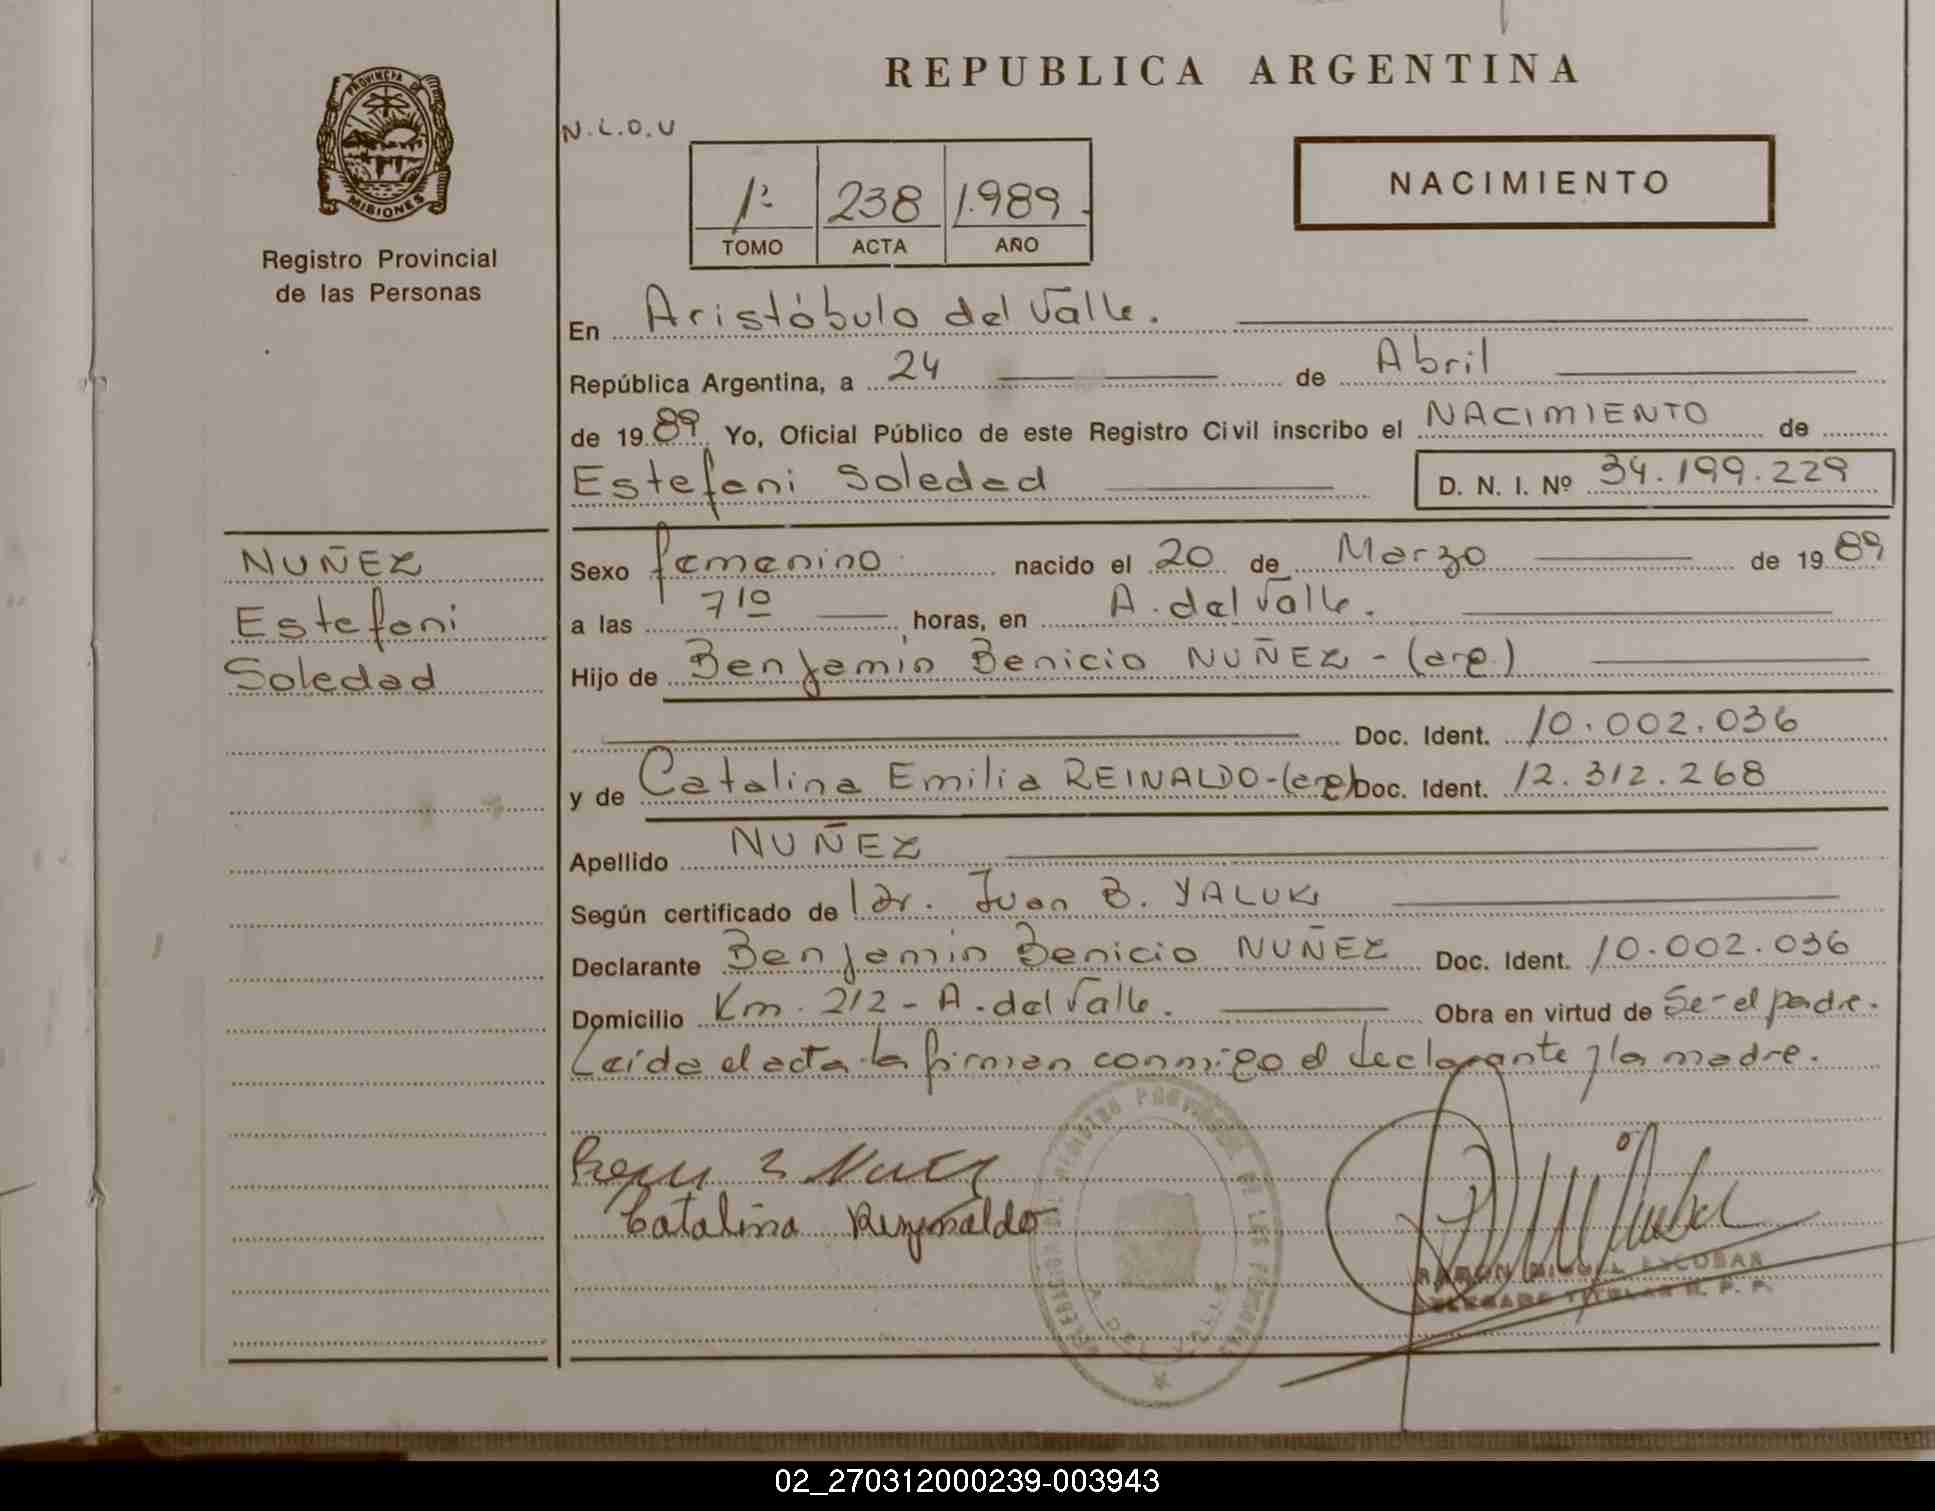 REPUBLICA ARGENTINA
PROVINCIA DE
MISIONES
Registro Provincial
de las Personas
N.L.O.U
1º 238 1.989
TOMO ACTA AÑO
NACIMIENTO
En Aristóbulo del Valle.
República Argentina, a 24 de Abril
de 1989 Yo, Oficial Público de este Registro Civil inscribo el NACIMIENTO de
Estefani Soledad D. N. I. Nº 34.199.229
NUÑEZ
Estefani
Soledad
Sexo femenino nacido el 20 de Marzo de 1989
a las 7 10 horas, en A. del Valle.
Hijo de Benjamin Benicio NUÑEZ - (arg.)
Doc. Ident. 10.002.036
y de Catalina Emilia REINALDO-(arg) Doc. Ident. 12.312.268
Apellido NUÑEZ
Según certificado de Dr. Juan B. YALUK
Declarante Benjamin Benicio NUÑEZ Doc. Ident. 10.002.036
Domicilio Km. 212 - A. del Valle. Obra en virtud de Se- el padre.
Leída el acta la firman conmigo el declarante y la madre.
Catalina Reynaldo
RAMON MIGUEL ESCOBAR
DELEGADO TITULAR R. P. P.
02_270312000239-003943